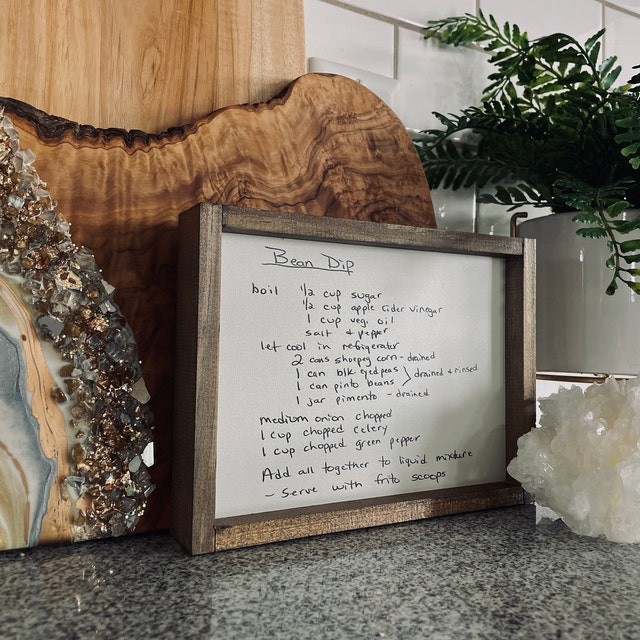 Bean Dip
boil 1/2 cup sugar
1/2 cup apple cider vinegar
1 cup veg. oil
salt + pepper
let cool in refrigerator
2 cans shoepeg corn - drained
1 can blk eyedpeas
1 can pinto beans > drained + rinsed
1 jar pimento - drained
medium onion chopped
1 cup chopped celery
1 cup chopped green pepper
Add all together to liquid mixture
- Serve with frito scoops